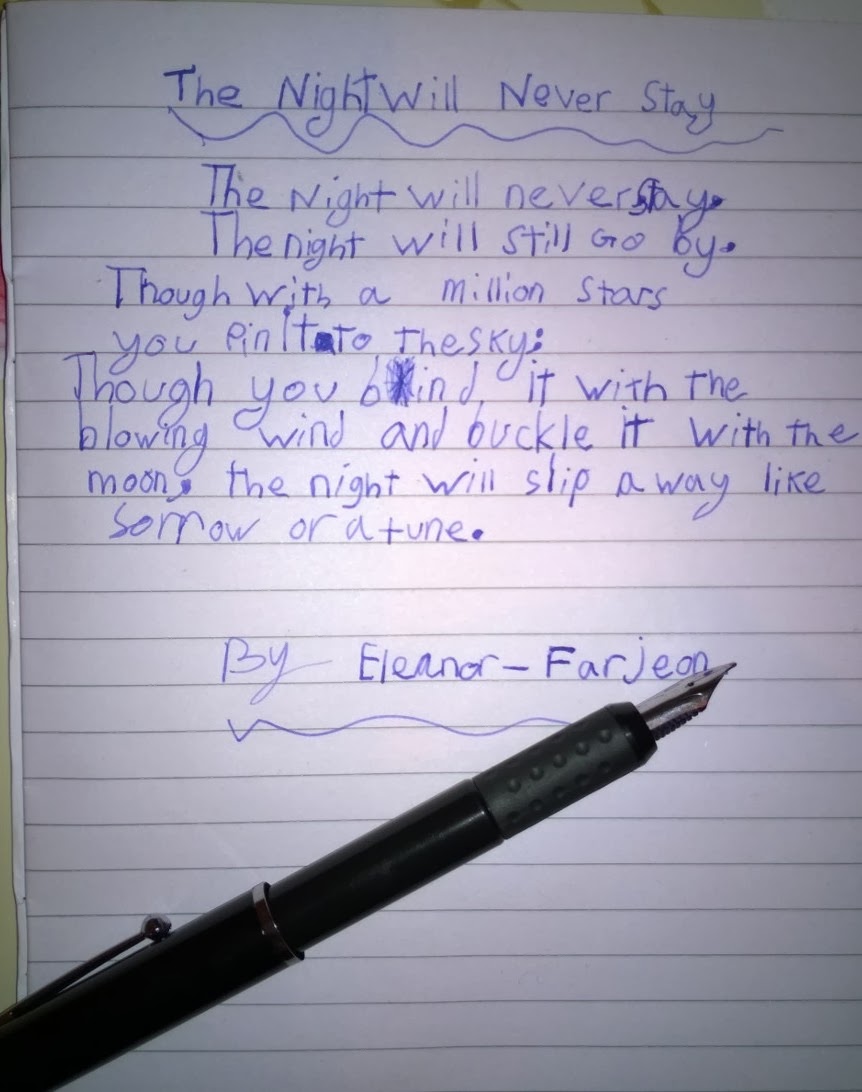 The Night Will Never Stay
The Night will never stay.
The night will still Go by.
Though with a million stars
you Pin It to the sky;
Though you bind it with the
blowing wind and buckle it with the
moon, the night will slip away like
sorrow or a tune.
By Eleanor-Farjeon